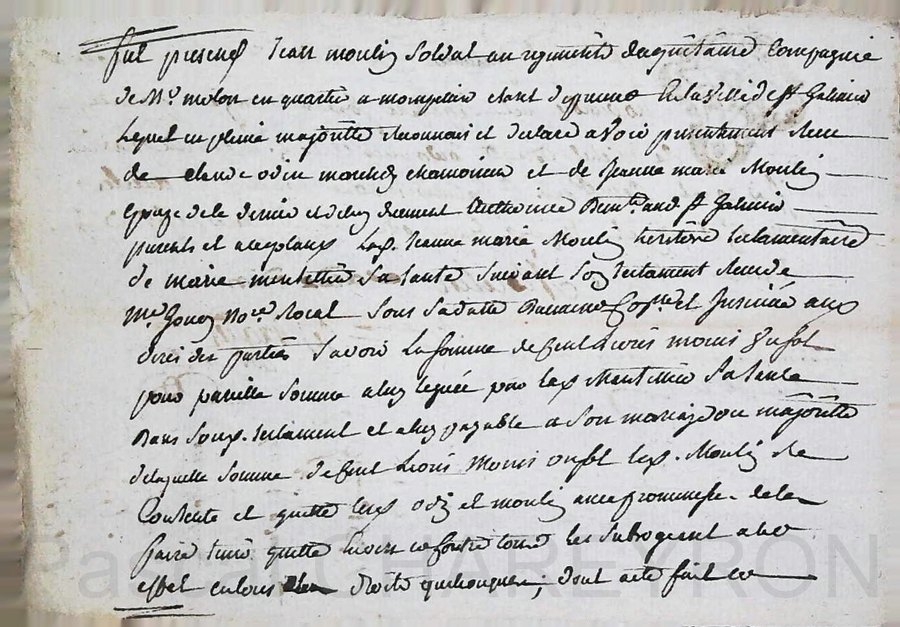 fut present Jean moulin soldat au regiment daquitaine Compagnie
de Mr. melon en quartier a monpelier etant de present En la ville de st Galmier
Lequel en pleine majorité reconnait et declare avoir presentement receu
de claude odin marchand et de Jeanne marie Moulin
Epouze de le dernier et deluy dument Authorisée st Galmier
parents et acceptans Lad. Jeanne marie Moulin heritiere testamentaire
de marie sa tante suivant son testament receu de
Me. Nore. Royal sous sa datte et Insinué aux
dires des parties savoir La somme de Cent Livres moins un sol
pour pareille somme a luy leguée par lad. sa tante
Dans son testament et a luy payable a son mariage ou majorité
de laquelle somme de Cent Livres moins un sol led. Moulin se
Contente et quitte lesd odin et moulin avec promesse de les
faire tenir quitte envers et contre tous les subrogeant a cet
effet en tous droits quelconques; dont acte fait et
Pascal CHAREYRON